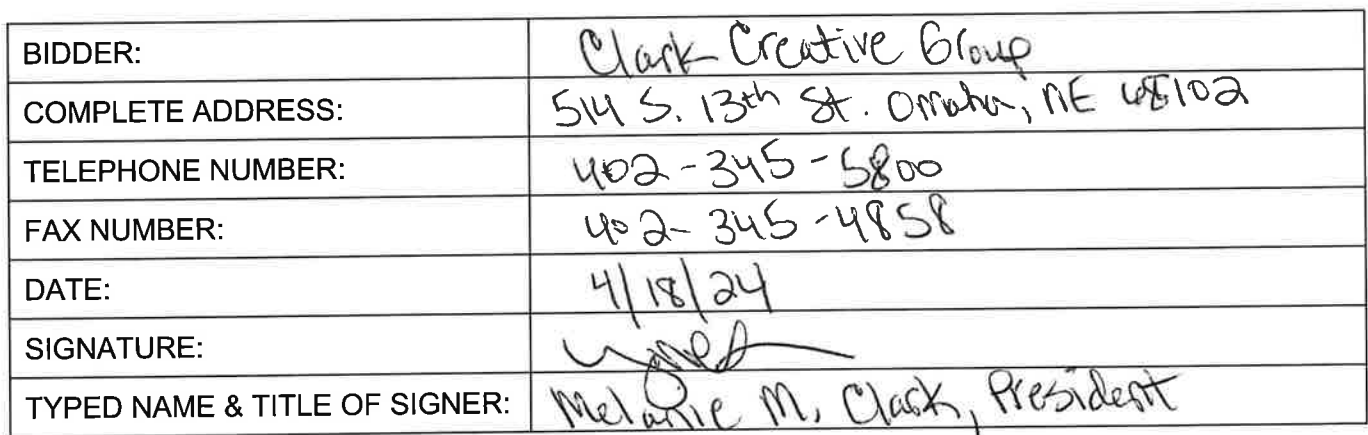 BIDDER: Clark Creative Group
COMPLETE ADDRESS: 514 S. 13th St. Omaha, NE 68102
TELEPHONE NUMBER: 402-345-5800
FAX NUMBER: 402-345-4858
DATE: 4/18/24
SIGNATURE:
TYPED NAME & TITLE OF SIGNER: Melanie M. Clark, President